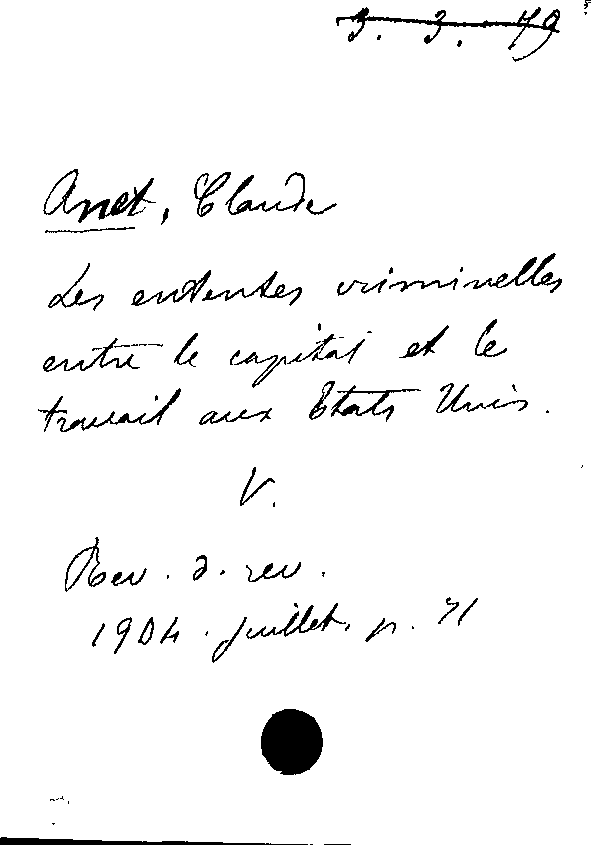 3. 3. 79
Anet, Claude
Les ententes criminelles
entre le capital et le
travail aux Etats Unis.
V.
Rev. d. rev.
1904. juillet, p. 71